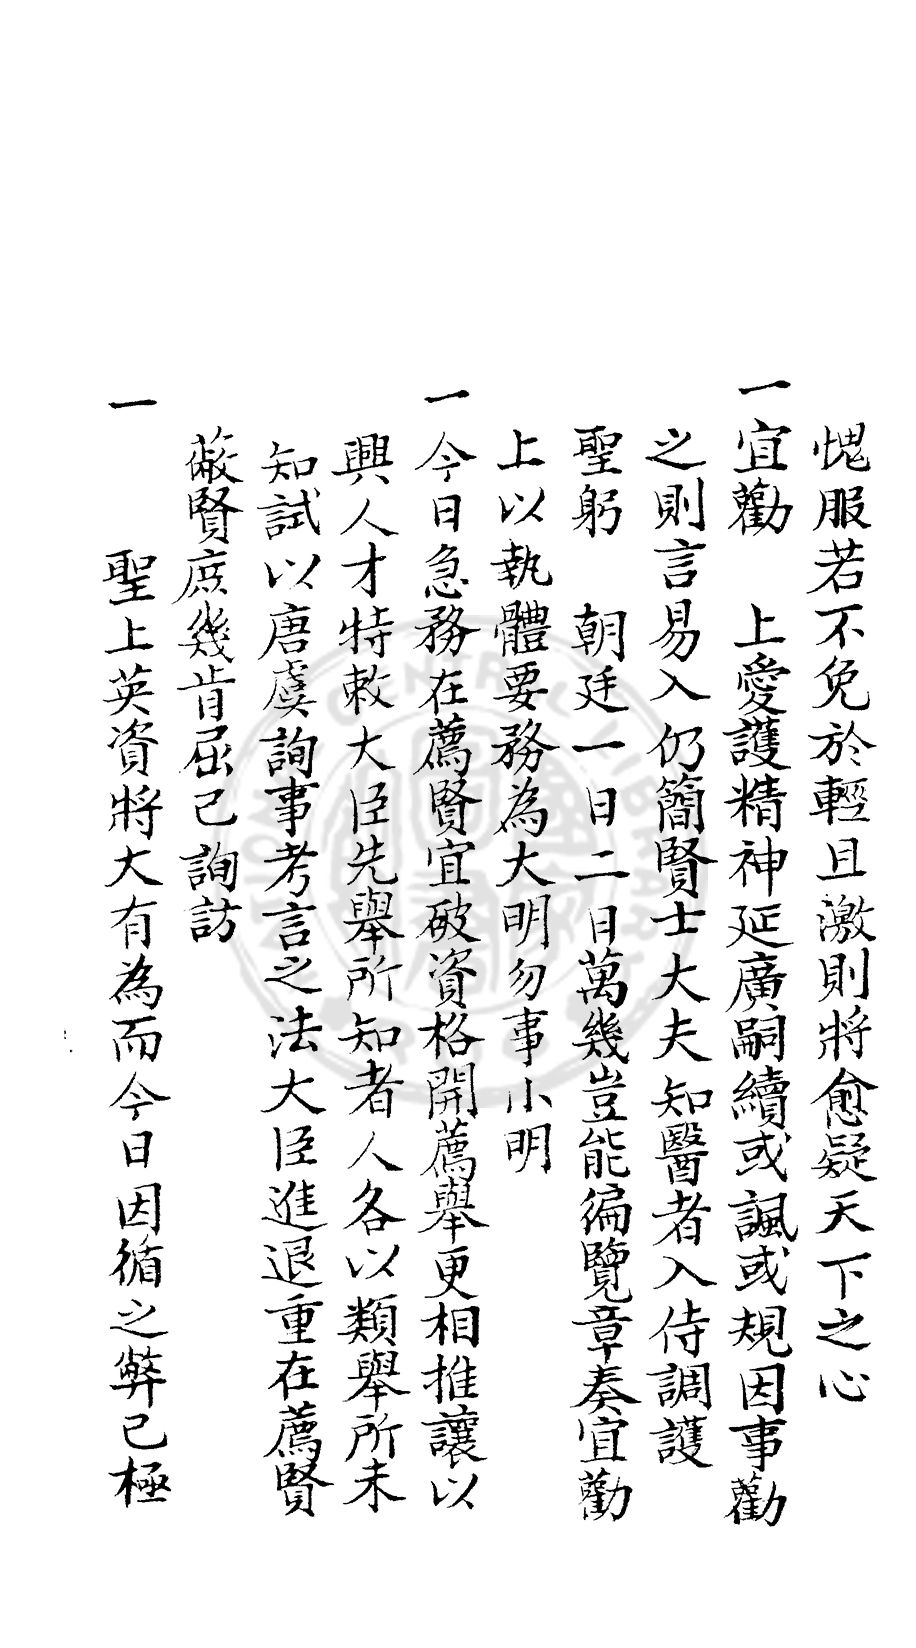 愧服若不免於輕且激則將愈疑天下之心
一宜勸　上愛護精神延廣嗣續或諷或規因事勸
之則言易入仍簡賢士大夫知醫者入侍調護
聖躬　朝廷一日二日萬幾豈能徧覽章奏宜勸
上以執體要務為大明勿事小明
一今日急務在薦賢宜破資格開薦舉更相推讓以
興人才特敕大臣先舉所知者人各以類舉所未
知試以唐虞詢事考言之法大臣進退重在薦賢
蔽賢庶幾肯屈己詢訪
一　聖上英資將大有為而今日因循之弊已極